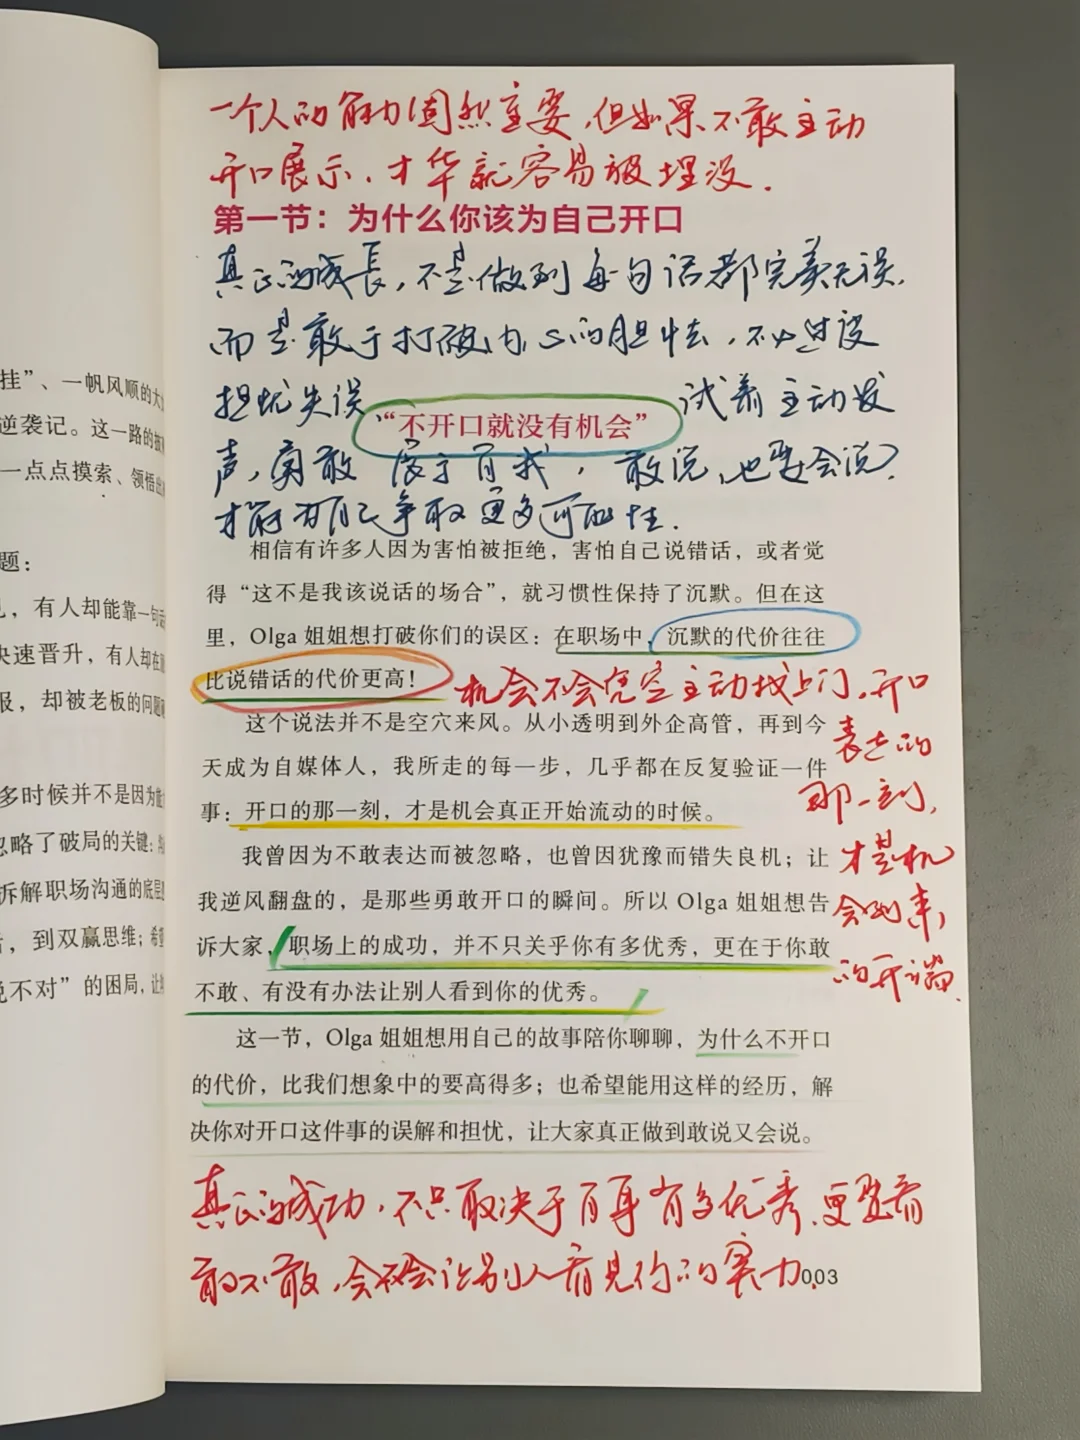 挂”、一帆风顺的大
逆袭记。这一路的
一点点摸索、领悟出
题：
，有人却能靠一句话
快速晋升，有人却在
报，却被老板的问题
多时候并不是因为能
忽略了破局的关键：沟
拆解职场沟通的底层
，到双赢思维；希望
说不对”的困局，让
一个人的能力固然重要，但如果不敢主动
开口展示，才华就容易被埋没．
第一节：为什么你该为自己开口
真正的成长，不是做到每句话都完美无误，
而是敢于打破内心的胆怯，不必过度
担忧失误，试着主动发
“不开口就没有机会”
声，勇敢展示自我，敢说，也要会说，
才能为自己争取更多可能性．
相信有许多人因为害怕被拒绝，害怕自己说错话，或者觉
得“这不是我该说话的场合”，就习惯性保持了沉默。但在这
里，Olga 姐姐想打破你们的误区：在职场中，沉默的代价往往
比说错话的代价更高！
机会不会凭空主动找上门，开口
表达的
那一刻，
才是机
会到来
的开端．
这个说法并不是空穴来风。从小透明到外企高管，再到今
天成为自媒体人，我所走的每一步，几乎都在反复验证一件
事：开口的那一刻，才是机会真正开始流动的时候。
我曾因为不敢表达而被忽略，也曾因犹豫而错失良机；让
我逆风翻盘的，是那些勇敢开口的瞬间。所以 Olga 姐姐想告
诉大家，职场上的成功，并不只关乎你有多优秀，更在于你敢
不敢、有没有办法让别人看到你的优秀。
这一节，Olga 姐姐想用自己的故事陪你聊聊，为什么不开口
的代价，比我们想象中的要高得多；也希望能用这样的经历，解
决你对开口这件事的误解和担忧，让大家真正做到敢说又会说。
真正的成功，不只取决于自身有多优秀，更要看
敢不敢，会不会让别人看见你的实力．
003